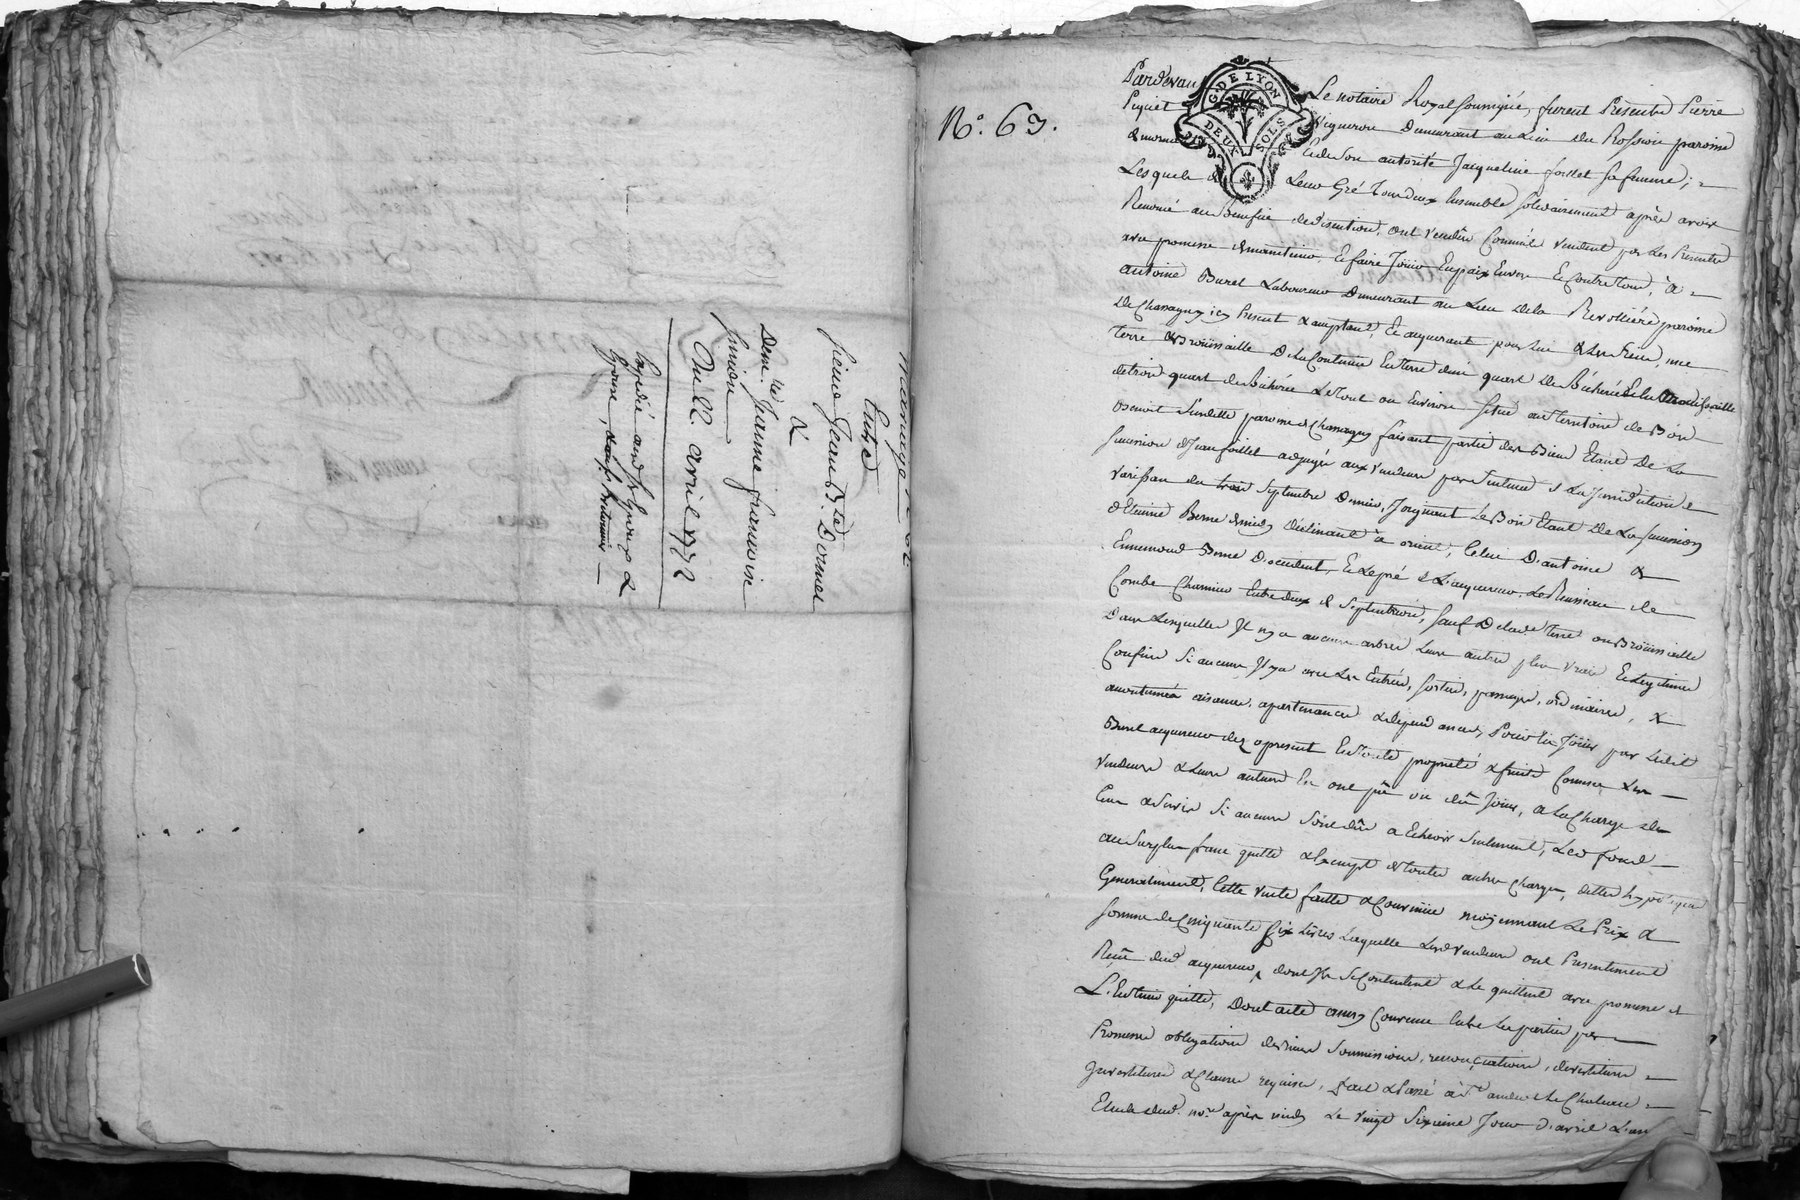 Mariage
Entre
sieur Jean B.te Dornet
&
Dem.lle Jeanne francoise
Du 22. avril 1772
Expedié aud. S.r époux &
N.o 63.
G. DE LYON
DEUX SOLS
Pardevant Le notaire Royal soussigné, furent Présents Pierre
Piquet Vigneron Demeurant au Lieu du Rossoir paroisse
Et de son autorité Jacqueline foillet sa femme; =
Lesquels de Leur Gré Tous deux Ensemble solidairement après avoir
Renoncé au Benefice de discution, ont vendu Comme ils vendent par Les Presentes
avec promesse de maintenir Et faire Joüir En paix Envers Et Contre tous, à =
antoine Burel Laboureur Demeurant au Lieu de la Revoltiére paroisse
De Chassagny icy Present & acceptant, Et acquerant pour lui & Les siens, une
terre & Broussaille De la Contenue En terre d'un quart De Bicherée & En Broussaille
de trois quart de Bicherée Le tout ou Environ situé au Territoire de Bon
paroisse de Chassagny faisant partie des Biens Etant De La
succession de Jean foillet adjugés aux vendeurs par Sentence de La Jurisdiction de
du trois Septembre Dernier, Joignant Le Bois Etant De La succession
d'Etienne Berne de midy declinant à orient, Celui D'antoine &
Ennemond Berne D'occident, Et Le pré de L'acquereur, Le Ruisseau de
Combe Charnier Entre deux de Septentrion, sauf De lad.e terre ou Broussaille
Dans Lesquelles Il n'y a aucuns arbres Leurs autres plus vrais Et Legitimes
Confins si aucuns Il y a avec Les Entrées, sorties, passages, ordinaires, &
accoutumés aisances, apartenances & dependances, Pour En Joüir par Ledit
Burel acquereur dez apresent En toute proprieté & fruits Comme Les
vendeurs & Leurs auteurs En ont pû ou dû Joüir, a La Charge des
Cens & Servis si aucuns sont dûs a Echeoir Seulement, Led. fond
au Surplus franc quitte & Exempt de toutes autres Charges, dettes hypoteques
Generalement, Cette vente faitte & Convenüe moyennant Le Prix &
somme de Cinquante six Livres Laquelle Lesd. vendeurs ont Presentement
Reçû dud. acquereur, dont Ils se Contentent & Le quittent avec promesse de
L'En tenir quitte, Dont acte ainsy Convenu Entre Les parties par
Promesse obligations de biens Soumissions, renonciations, devestiture
Investiture & Clauses requises, fait & Passé à S.t andeol Le Chateau
Etude dud. no.re après midy Le vingt Sixieme Jour d'avril L'an